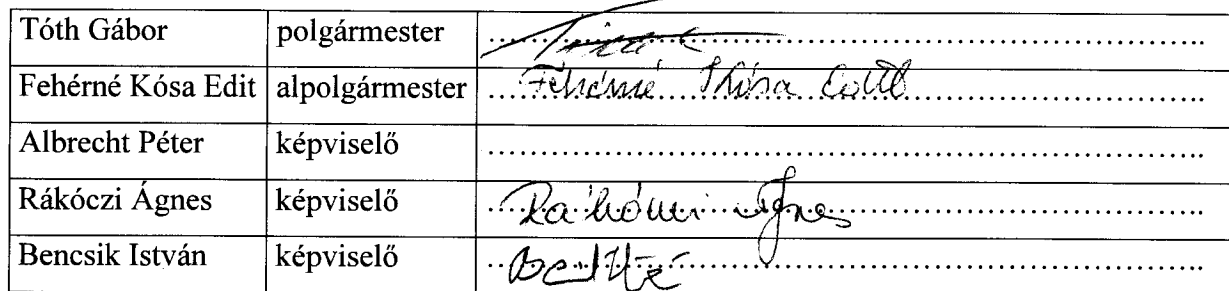 Tóth Gábor polgármester ........................................
Fehérné Kósa Edit alpolgármester Fehérné Kósa Edit
Albrecht Péter képviselő ........................................
Rákóczi Ágnes képviselő Rákóczi Ágnes
Bencsik István képviselő ........................................